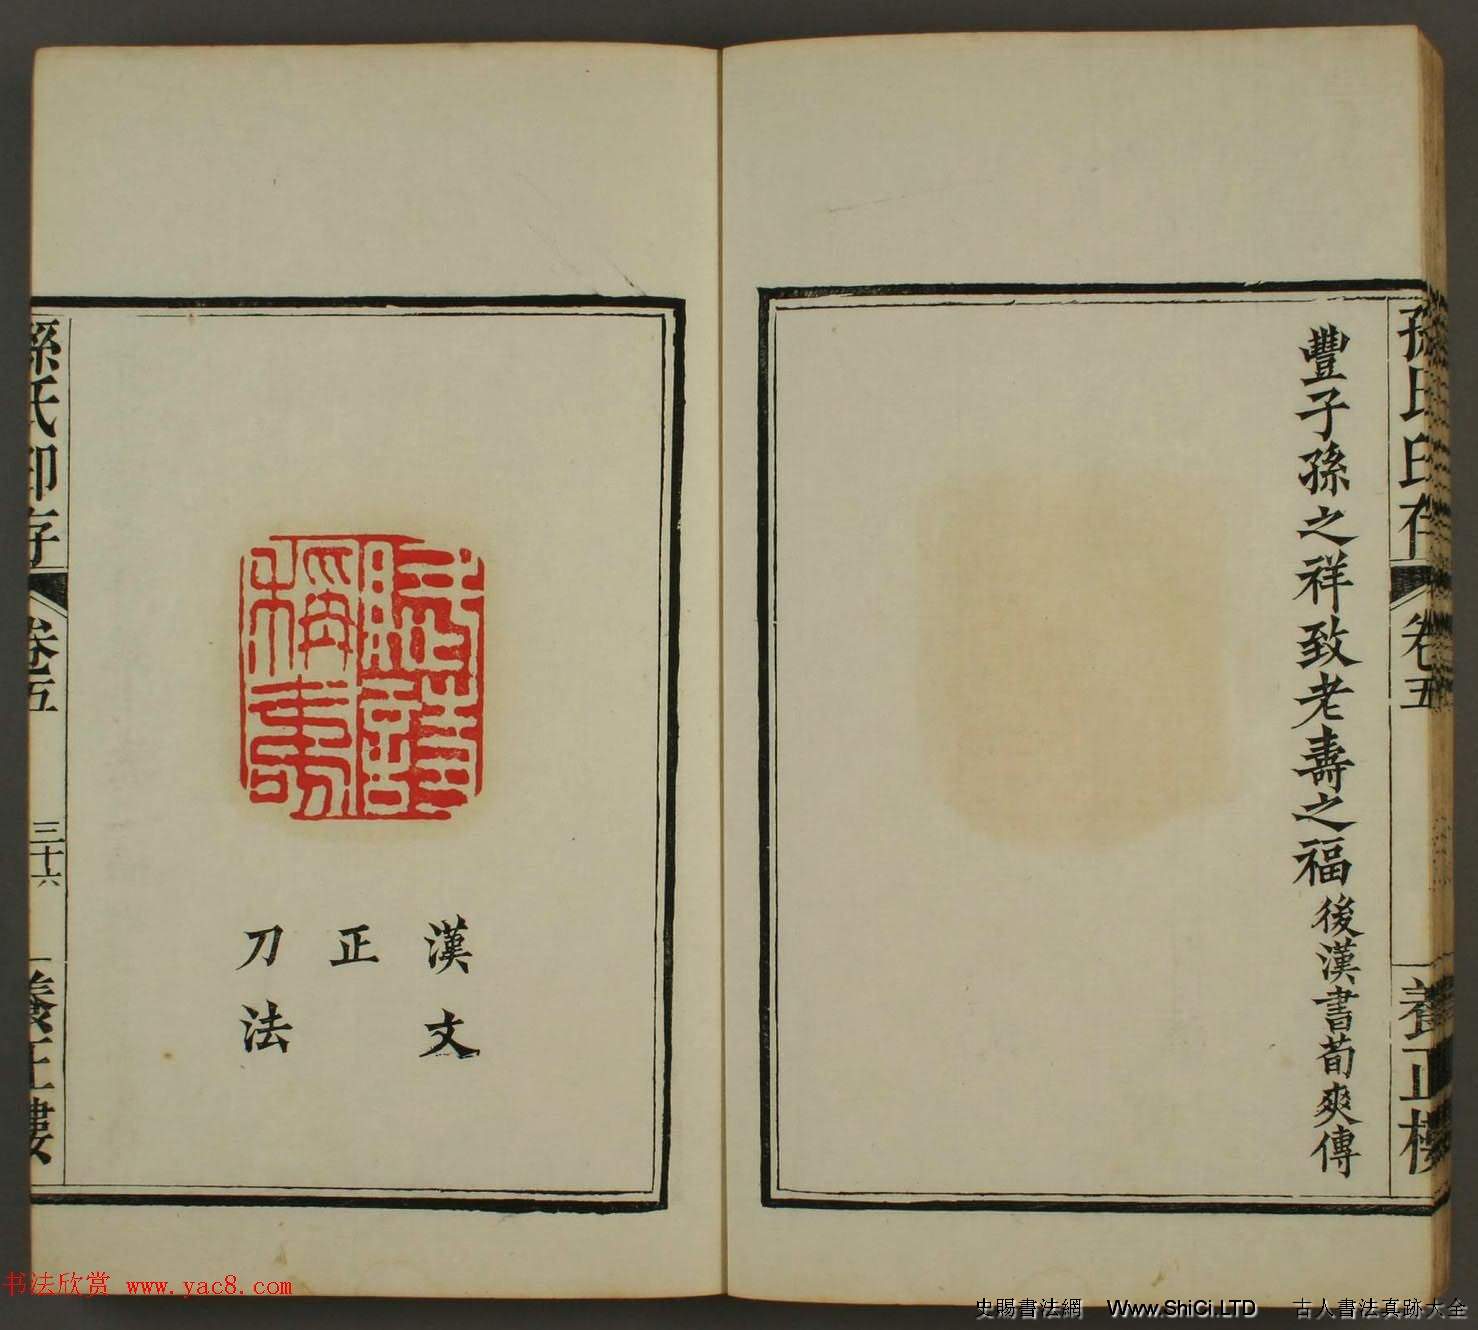 孫氏印存
卷五
養正樓
豐子孫之祥致老壽之福 後漢書荀爽傳
賦詩
稱壽
漢文
正
刀法
孫氏印存
卷五
三十六
養正樓
书法欣赏 www.yac8.com
史賜書法網 Www.ShiCi.LTD 古人書法真跡大全